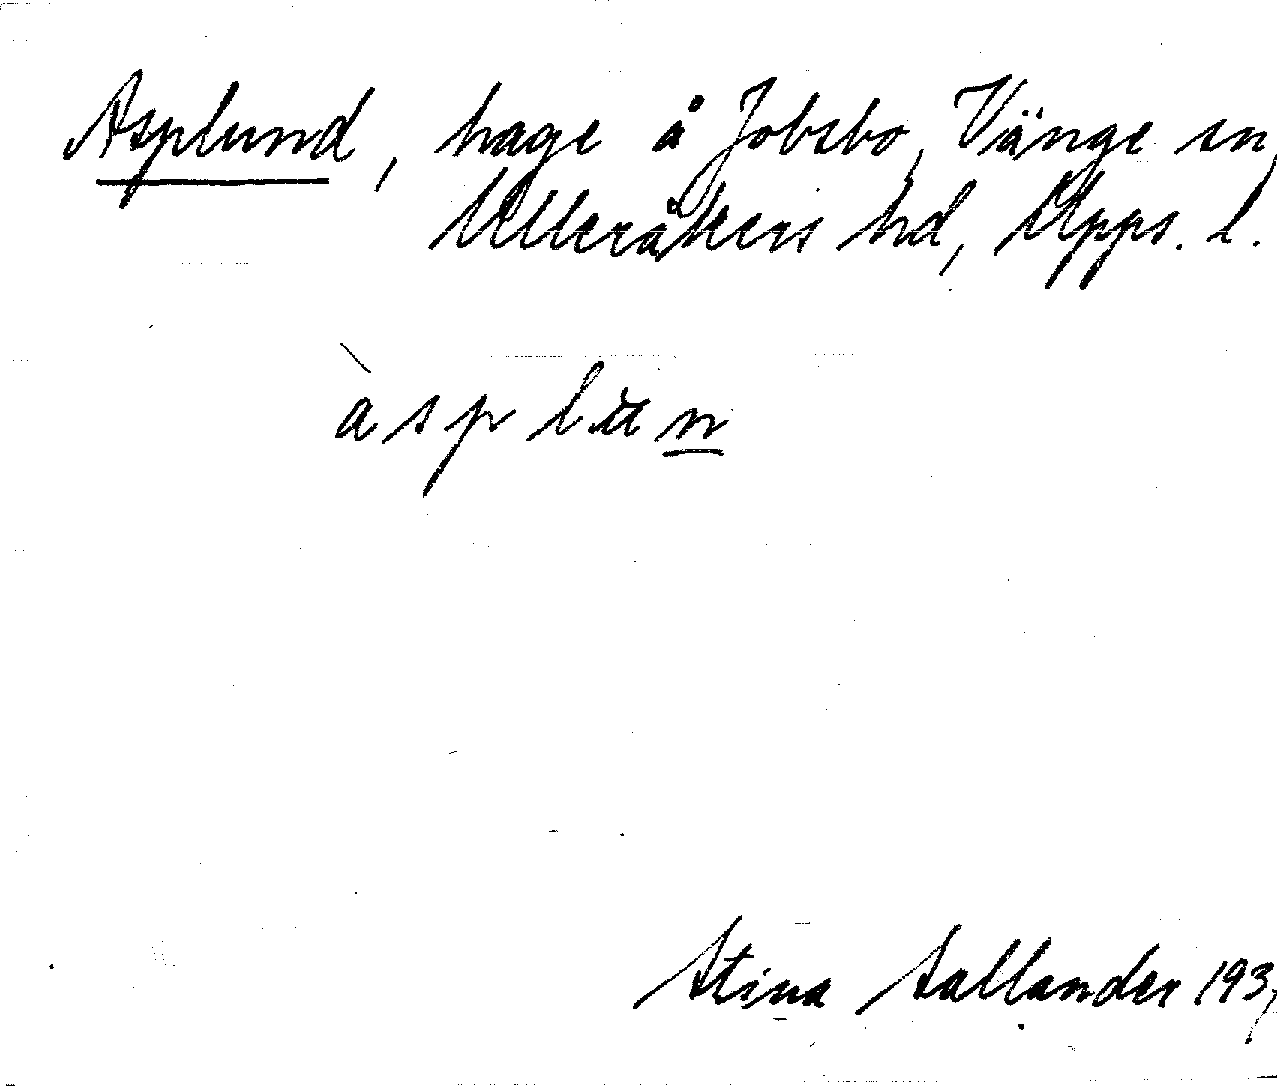 Asplund, hage å Jobsbo, Vänge sn,
Ulleråkers hd, Upps. l.
àsplun
Stina Sallander 193